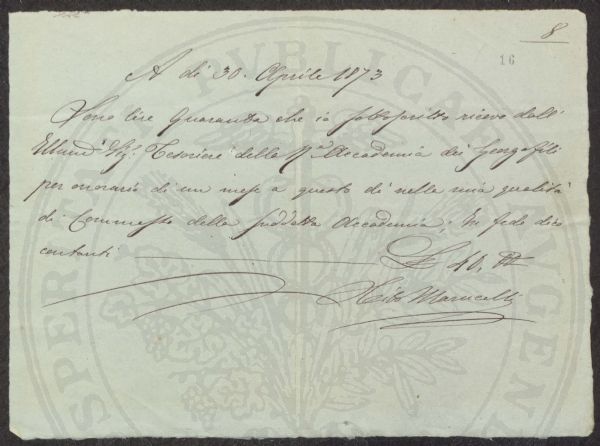 8
16
A dì 30. Aprile 1873
Sono lire Quaranta che io sottoscritto ricevo dall'
Illmo Sig: Tesoriere della Ra Accademia dei Georgofili
per onorario di un mese a questo dì nella mia qualità
di Commesso della suddetta Accademia; In fede dico
contanti £ 40,
Marucelli
PUBLICAE